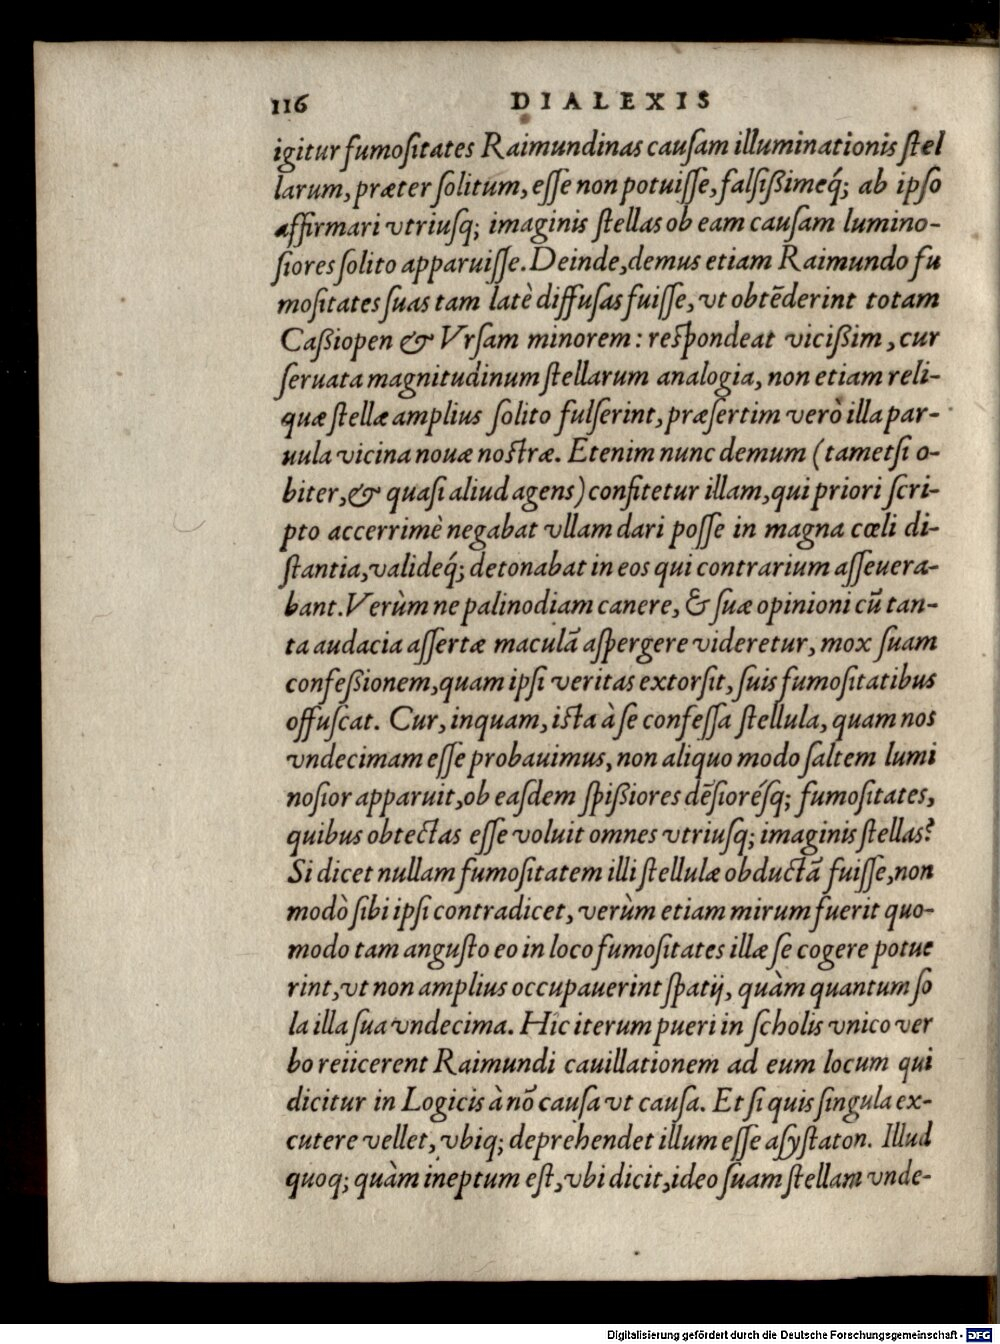 116 DIALEXIS
igitur fumoſitates Raimundinas cauſam illuminationis ſtel
larum, præter ſolitum, eſſe non potuiſſe, falſißimeq́; ab ipſo
affirmari vtriuſq; imaginis ſtellas ob eam cauſam lumino-
ſiores ſolito apparuiſſe. Deinde, demus etiam Raimundo fu
moſitates ſuas tam latè diffuſas fuiſſe, vt obtēderint totam
Caßiopen & Vrſam minorem: reſpondeat vicißim, cur
ſeruata magnitudinum ſtellarum analogia, non etiam reli-
quæ ſtellæ amplius ſolito fulſerint, præſertim verò illa par-
uula vicina nouæ noſtræ. Etenim nunc demum (tametſi o-
biter, & quaſi aliud agens) confitetur illam, qui priori ſcri-
pto accerrimè negabat vllam dari poſſe in magna cœli di-
ſtantia, valideq́; detonabat in eos qui contrarium aſſeuera-
bant. Verùm ne palinodiam canere, & ſuæ opinioni cū tan-
ta audacia aſſertæ maculā aſpergere videretur, mox ſuam
confeßionem, quam ipſi veritas extorſit, ſuis fumoſitatibus
offuſcat. Cur, inquam, iſta à ſe confeſſa ſtellula, quam nos
vndecimam eſſe probauimus, non aliquo modo ſaltem lumi
noſior apparuit, ob eaſdem ſpißiores dēſioréſq; fumoſitates,
quibus obtectas eſſe voluit omnes vtriuſq; imaginis ſtellas?
Si dicet nullam fumoſitatem illi ſtellulæ obductā fuiſſe, non
modò ſibi ipſi contradicet, verùm etiam mirum fuerit quo-
modo tam anguſto eo in loco fumoſitates illæ ſe cogere potue
rint, vt non amplius occupauerint ſpatij, quàm quantum ſo
la illa ſua vndecima. Hic iterum pueri in ſcholis vnico ver
bo reiicerent Raimundi cauillationem ad eum locum qui
dicitur in Logicis à nō cauſa vt cauſa. Et ſi quis ſingula ex-
cutere vellet, vbiq; deprehendet illum eſſe aſyſtaton. Illud
quoq; quàm ineptum eſt, vbi dicit, ideo ſuam ſtellam vnde-
Digitalisierung gefördert durch die Deutsche Forschungsgemeinschaft - DFG